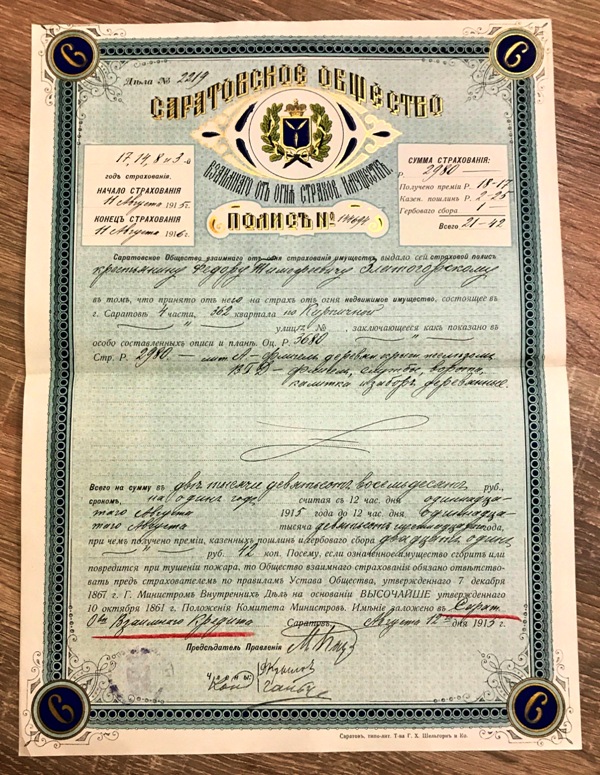 Дѣла № 2219
САРАТОВСКОЕ ОБЩЕСТВО
ВЗАИМНАГО ОТЪ ОГНЯ СТРАХОВ. ИМУЩЕСТВЪ
ПОЛИСЪ №
17, 14, 8 и 3-й
годъ страхованія.
НАЧАЛО СТРАХОВАНІЯ
11 Августа 1915 г.
КОНЕЦЪ СТРАХОВАНІЯ
11 Августа 1916 г.
СУММА СТРАХОВАНІЯ:
Р. 2980 —
Получено преміи Р. 18-17
Казен. пошлинъ Р. 2-25
Гербоваго сбора
Всего 21-42
Саратовское Общество взаимнаго отъ огня страхованія имуществъ, выдало сей страховой полисъ
крестьянину Ѳедору Тимофеевичу Златогорскому
въ томъ, что принято отъ него на страхъ отъ огня недвижимое имущество, состоящее въ
г. Саратовѣ 4 части, 362 квартала по Кирпичной
улицѣ №, заключающееся какъ показано въ
особо составленныхъ описи и планъ. Оц. Р. 3680
Стр. Р. 2980 — лит А — флигель деревян крыт желѣзомъ
флигель, службы, ворота,
калитка и заборъ деревянные.
Всего на сумму въ двѣ тысячи девятьсотъ восемьдесятъ руб.,
срокомъ, на одинъ годъ считая съ 12 час. дня одиннадца-
таго Августа 1915 года до 12 час. дня одиннадца-
таго Августа тысяча девятьсотъ шестнадцатаго года,
при чемъ получено преміи, казенныхъ пошлинъ и гербоваго сбора двадцать одинъ
руб. 42 коп. Посему, если означенное имущество сгоритъ или
повредится при тушеніи пожара, то Общество взаимнаго страхованія обязано отвѣтство-
вать предъ страхователемъ по правиламъ Устава Общества, утвержденнаго 7 декабря
1867 г. Г. Министромъ Внутреннихъ Дѣлъ на основаніи ВЫСОЧАЙШЕ утвержденнаго
10 октября 1861 г. Положенія Комитета Министровъ. Имѣніе заложено въ Сарат.
Об Взаимнаго Кредита Саратовъ, Августа 12 дня 1915 г.
Предсѣдатель Правленія
Члены:
Саратовъ, типо-лит. Т-ва Г. Х. Шельгорнъ и Ко.